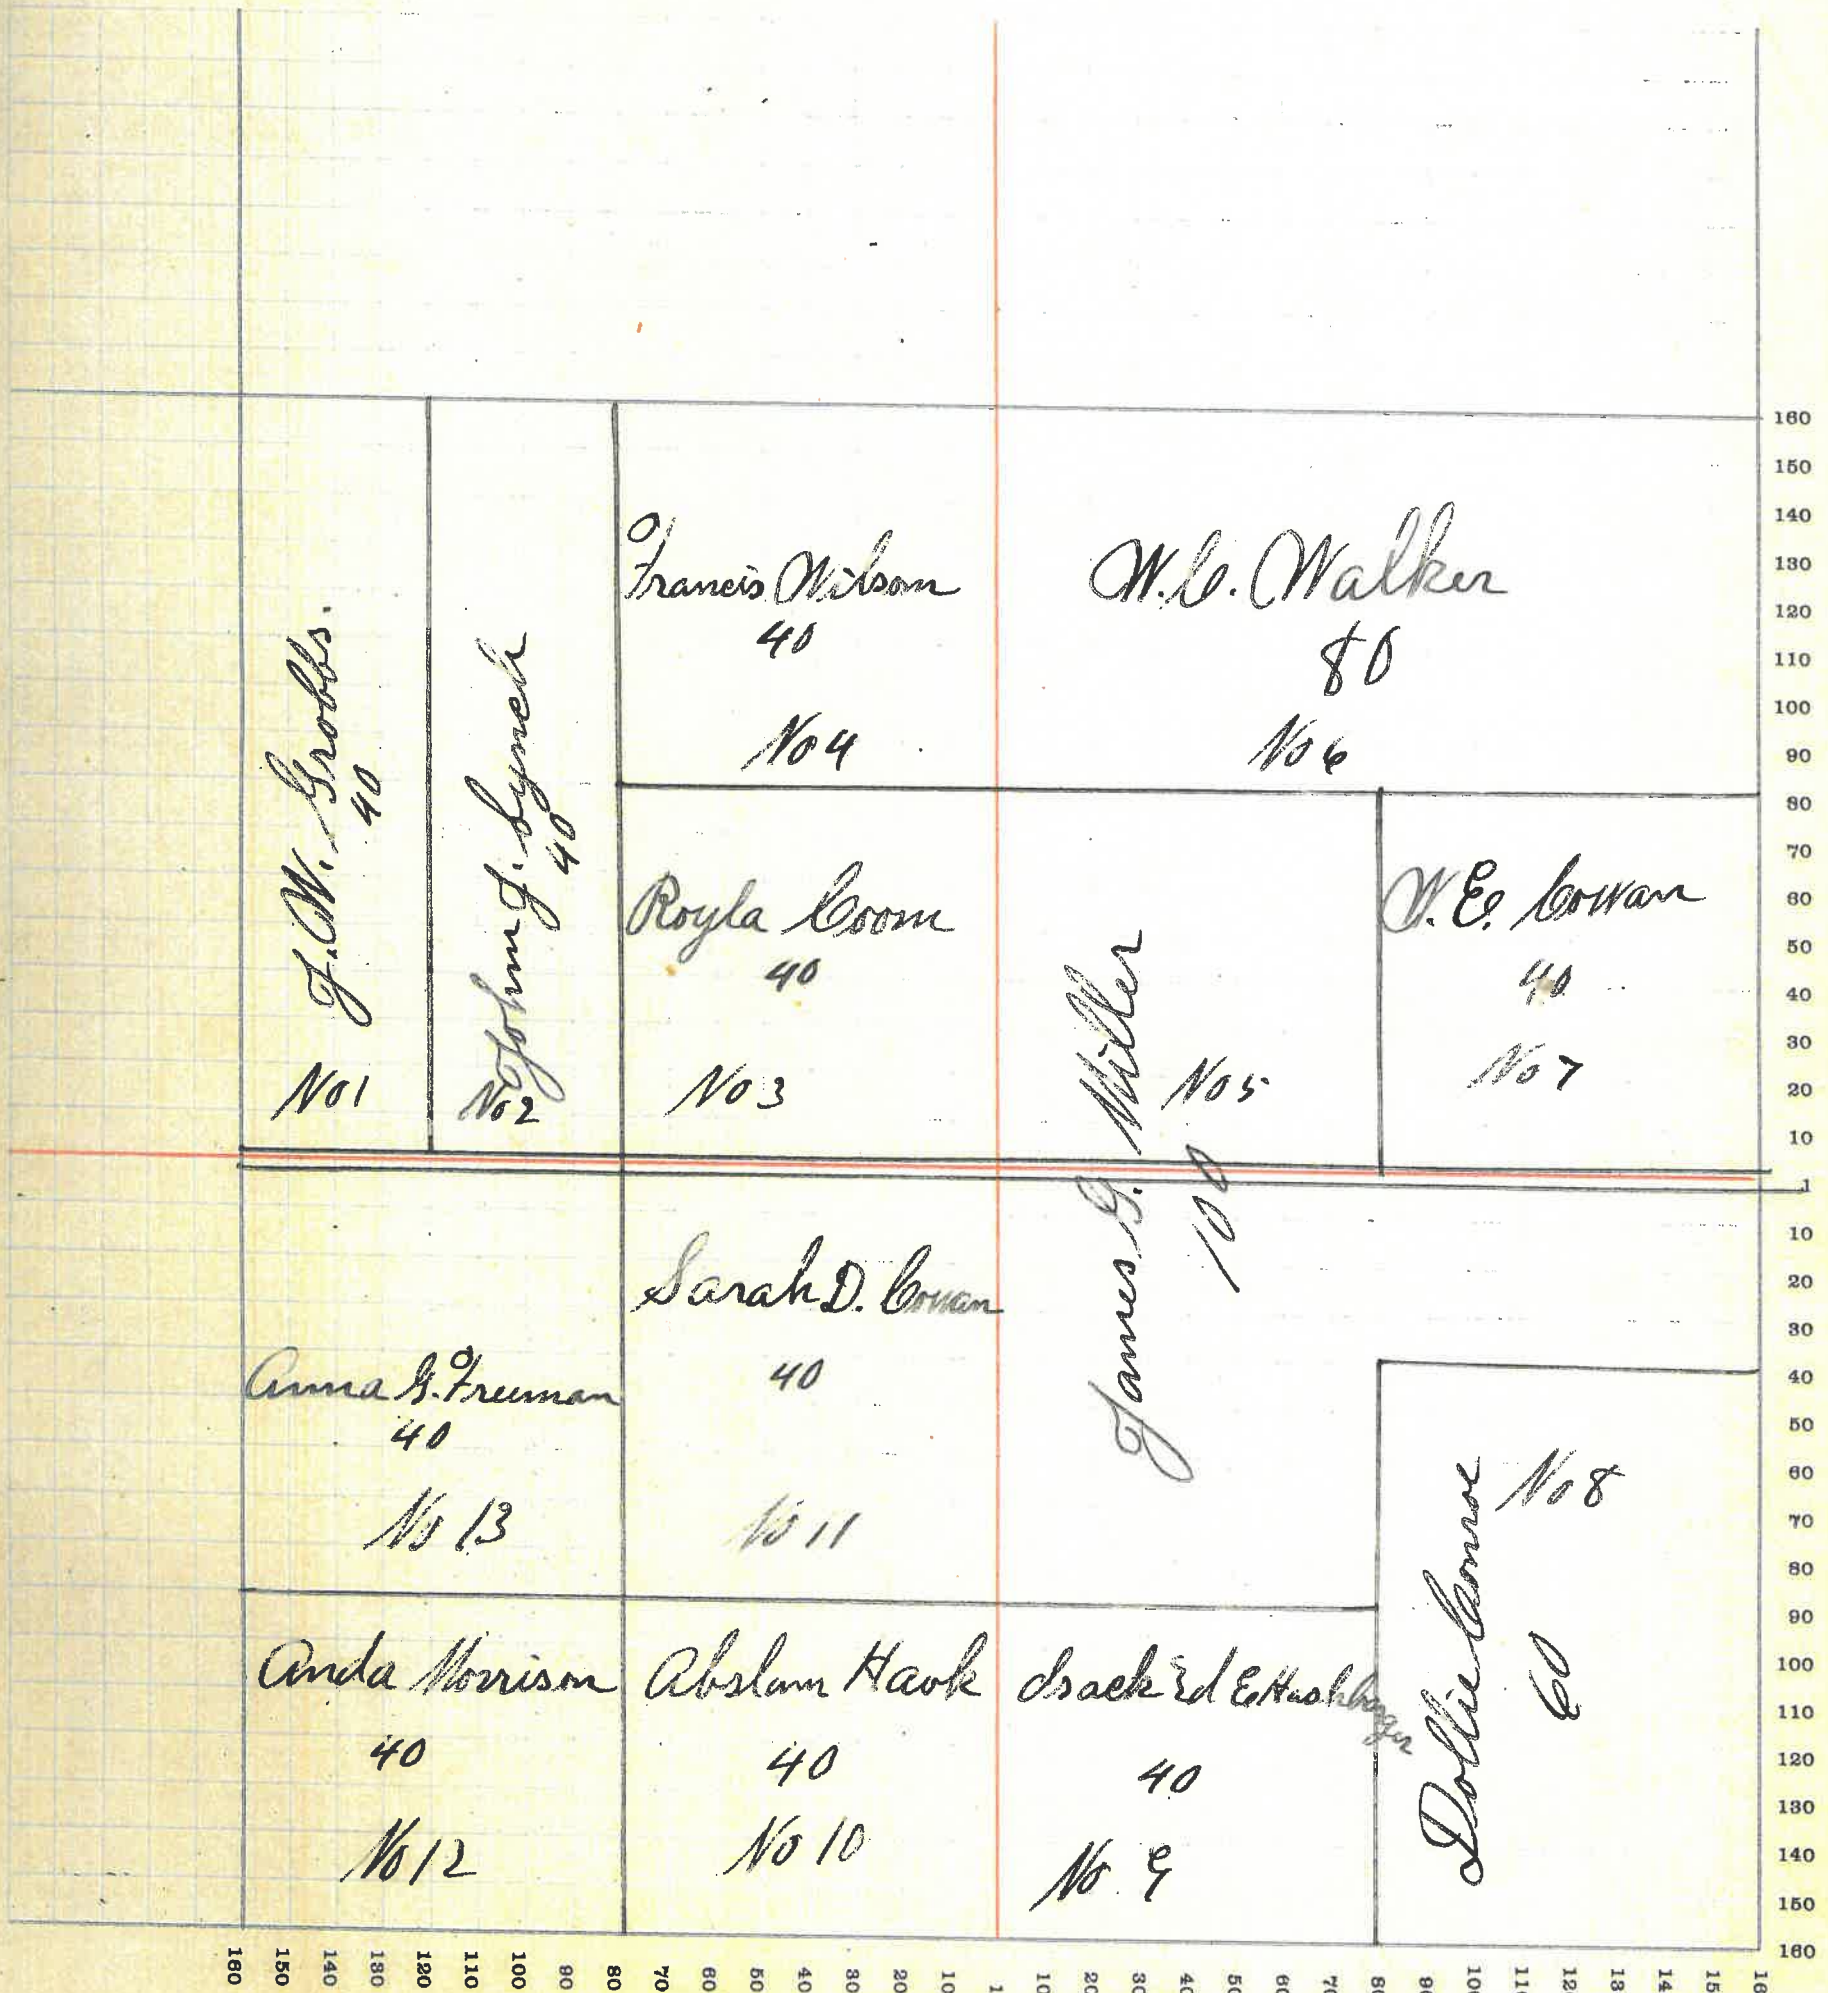 J. W. Grobbs.
40
No 1
John J. Lynch
40
No 2
Francis Wilson
40
No 4
W. C. Walker
80
No 6
Royla Coom
40
No 3
James G. Miller
100
No 5
W. E. Cowan
40
No 7
Anna G. Freeman
40
No 13
Sarah D. Cowan
40
No 11
Dollie Conroe
60
No 8
Anda Morrison
40
No 12
Abslum Hawk
40
No 10
Isack Ed E Hushbarger
40
No. 9
160
150
140
130
120
110
100
90
80
70
60
50
40
30
20
10
1
10
20
30
40
50
60
70
80
90
100
110
120
130
140
150
160
160 150 140 130 120 110 100 90 80 70 60 50 40 30 20 10 1 10 20 30 40 50 60 70 80 90 100 110 120 13 14 15 16